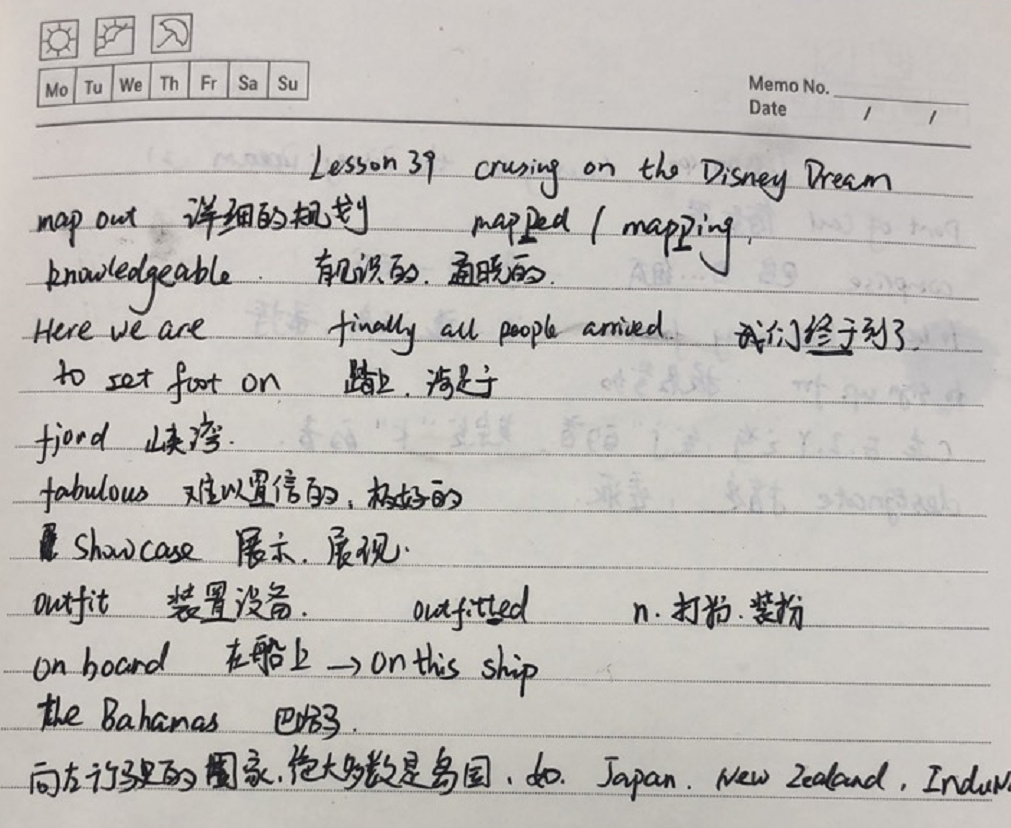 Mo Tu We Th Fr Sa Su
Memo No.
Date / /
Lesson 39 crusing on the Disney Dream
map out 详细的规划 mapped / mapping.
knowledgeable. 有见识的. 通晓的.
Here we are finally all people arrived. 我们终于到了.
to set foot on 踏上. 涉足于
fjord 峡湾.
fabulous 难以置信的, 极好的
showcase 展示. 展现.
outfit 装置设备. outfitted n. 打扮. 装扮
on board 在船上 → on this ship
the Bahanas 巴哈马.
向左行驶的国家. 绝大多数是岛国. Japan. New Zealand,